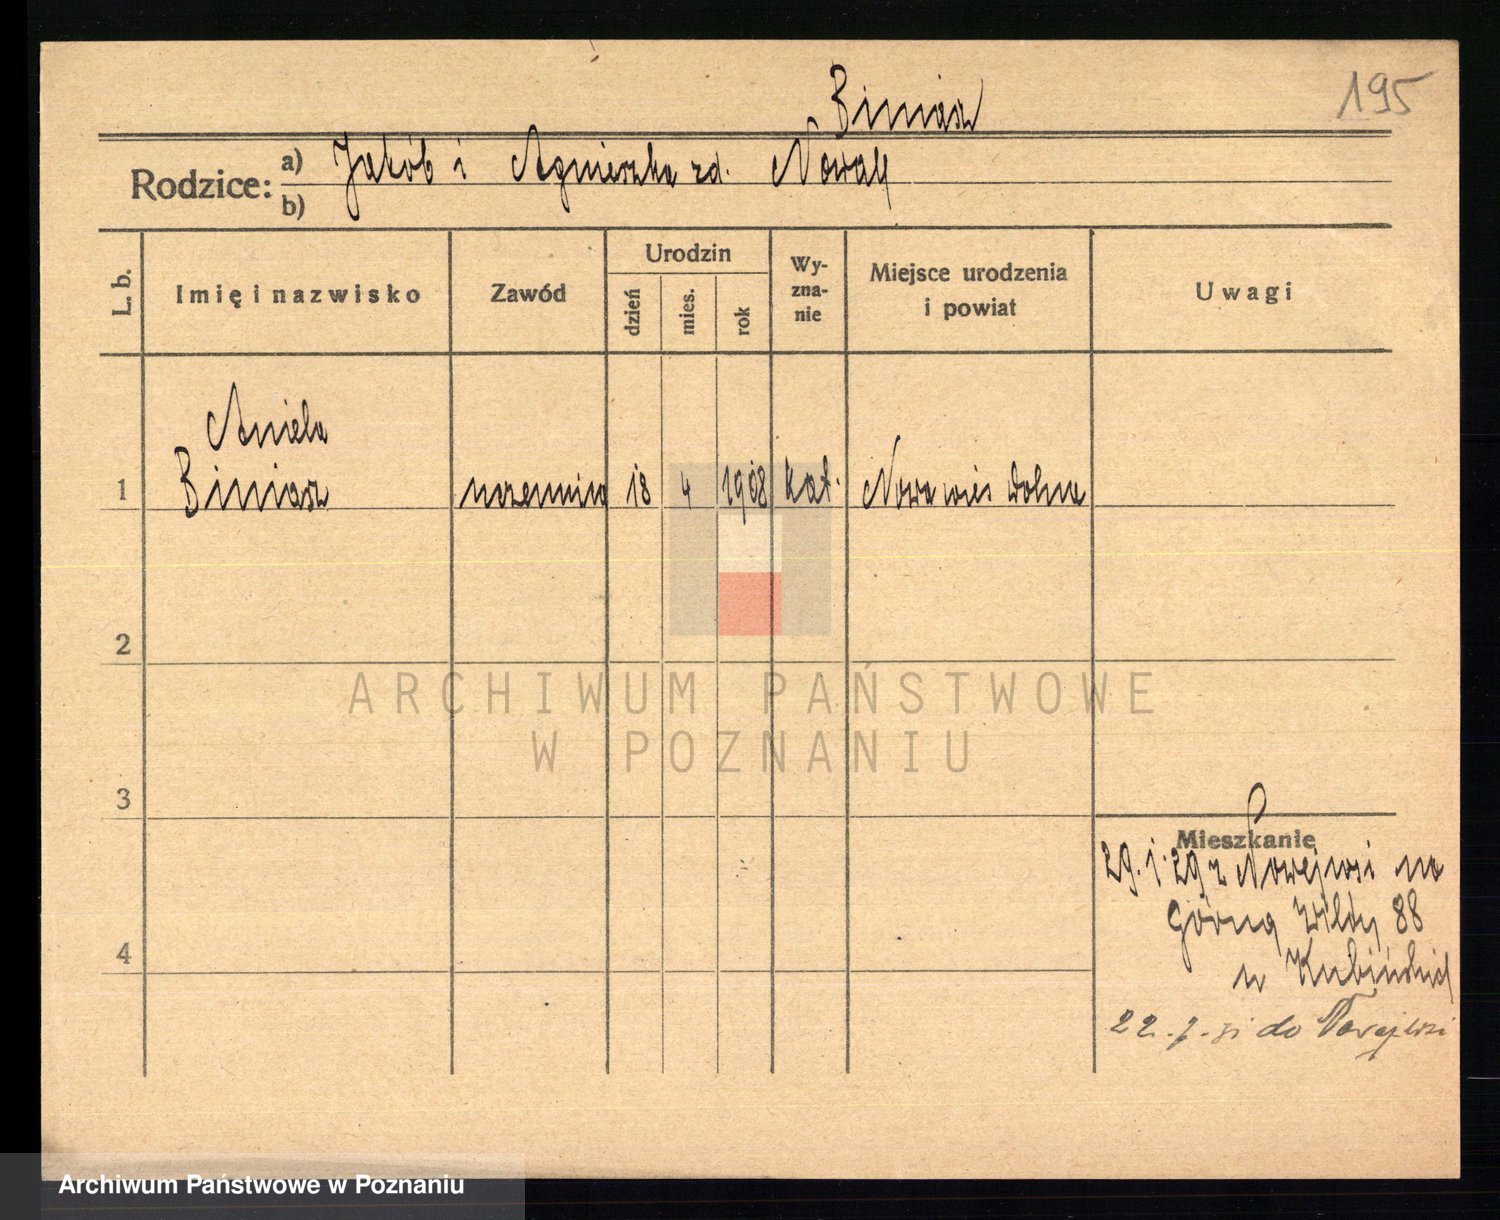 195
Biniasz
Rodzice: a) Jakób i Agnieszka zd. Nowak
b)
L. b.
Imię i nazwisko
Zawód
Urodzin
dzień
mies.
rok
Wy-
zna-
nie
Miejsce urodzenia
i powiat
Uwagi
Aniela
1 Biniasz 18 4 1908 kat. Nowawieś dolna
2
3
4
Mieszkanie
29.1.29 z Nowejwsi na
Górną Wildę 88
22. 7. 31 do Nowejwsi
ARCHIWUM PAŃSTWOWE
W POZNANIU
Archiwum Państwowe w Poznaniu